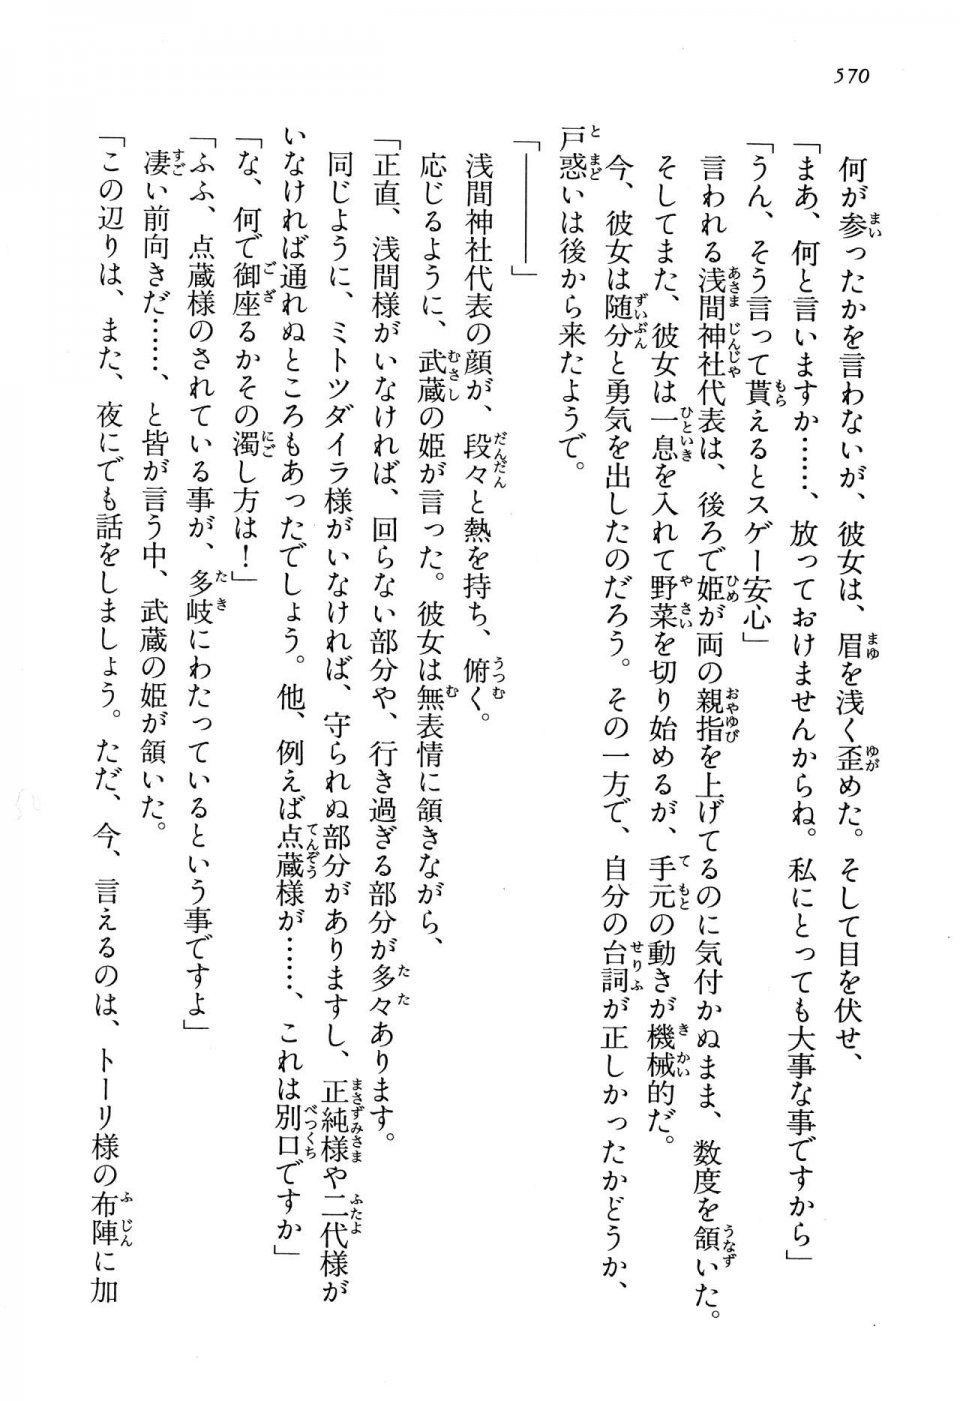 570
何が参ったかを言わないが、彼女は、眉を浅く歪めた。そして目を伏せ、
「まあ、何と言いますか……、放っておけませんからね。私にとっても大事な事ですから」
「うん、そう言って貰えるとスゲー安心」
言われる浅間神社代表は、後ろで姫が両の親指を上げてるのに気付かぬまま、数度を頷いた。
そしてまた、彼女は一息を入れて野菜を切り始めるが、手元の動きが機械的だ。
今、彼女は随分と勇気を出したのだろう。その一方で、自分の台詞が正しかったかどうか、
戸惑いは後から来たようで。
「―――――」
浅間神社代表の顔が、段々と熱を持ち、俯く。
応じるように、武蔵の姫が言った。彼女は無表情に頷きながら、
「正直、浅間様がいなければ、回らない部分や、行き過ぎる部分が多々あります。
同じように、ミトツダイラ様がいなければ、守られぬ部分がありますし、正純様や二代様が
いなければ通れぬところもあったでしょう。他、例えば点蔵様が……、これは別口ですか」
「な、何で御座るかその濁し方は！」
「ふふ、点蔵様のされている事が、多岐にわたっているという事ですよ」
凄い前向きだ……、と皆が言う中、武蔵の姫が頷いた。
「この辺りは、また、夜にでも話をしましょう。ただ、今、言えるのは、トーリ様の布陣に加